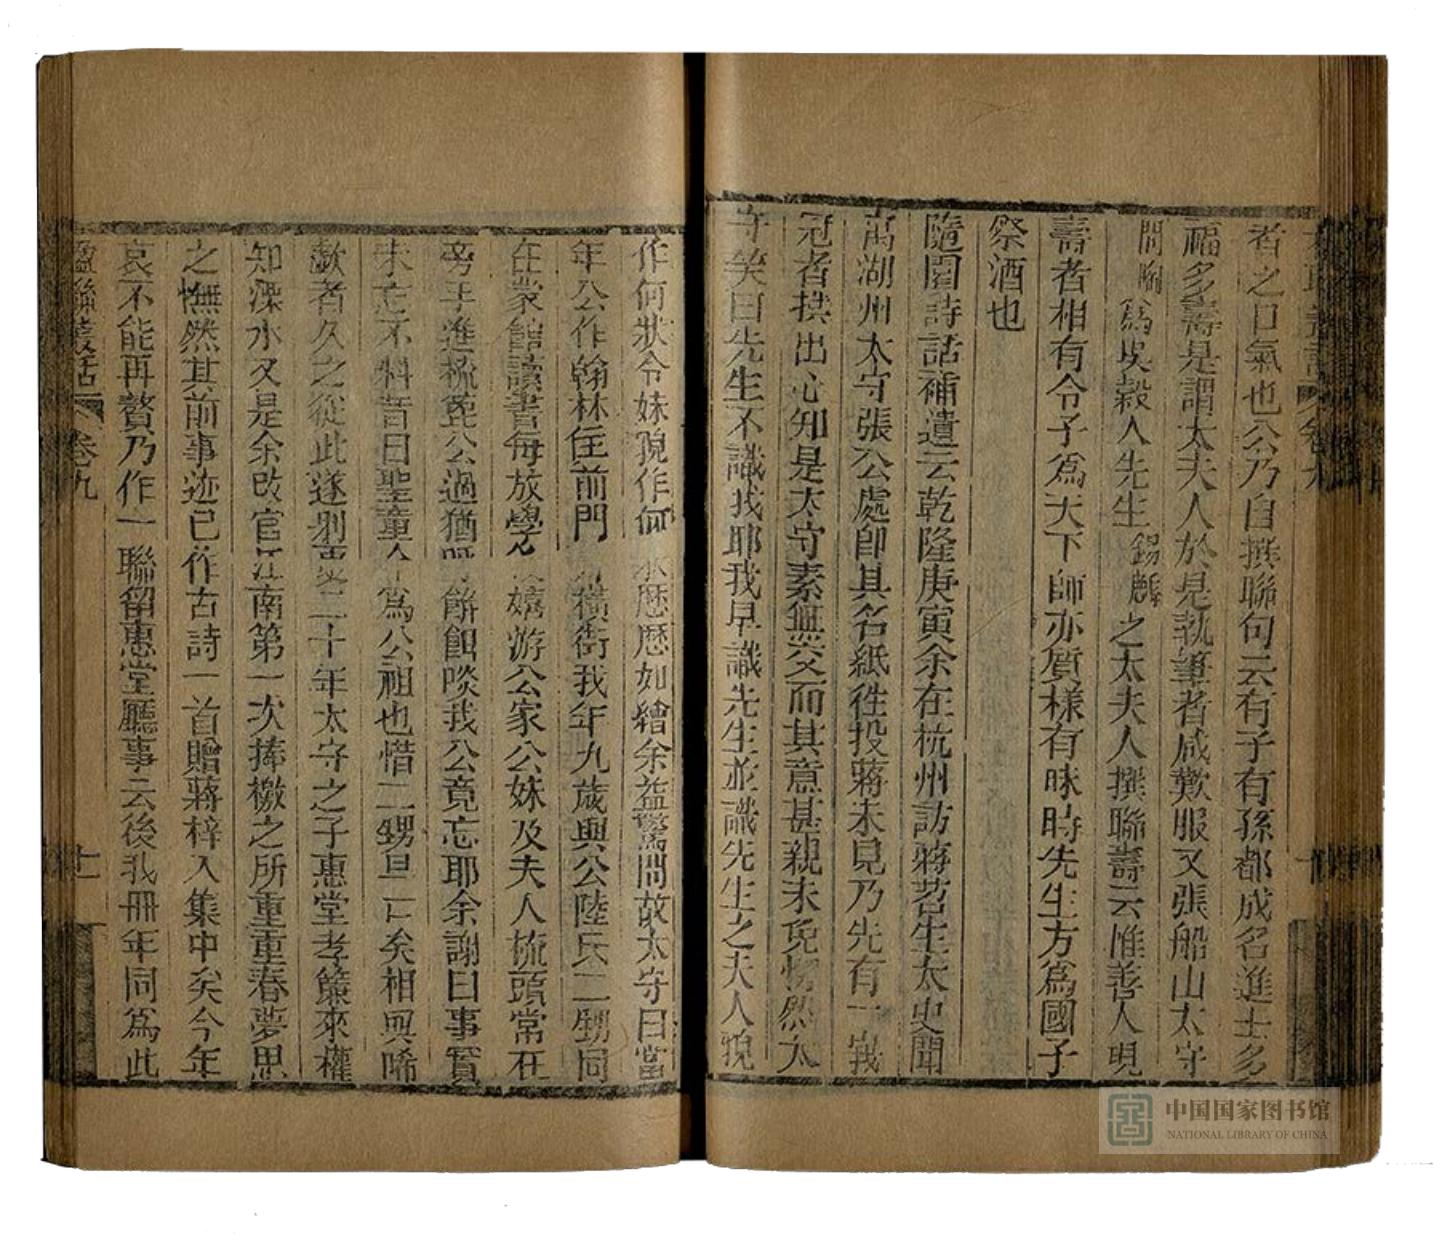 者之口氣也公乃自撰聯句云有子有孫都成名進士多
福多壽是謂太夫人於是執筆者咸歎服又張船山太守
問陶為吳穀人先生錫麒之太夫人撰聯壽云惟善人現
壽者相有令子為天下師亦質樣有味時先生方為國子
祭酒也
隨園詩話補遺云乾隆庚寅余在杭州訪蔣苕生太史聞
寓湖州太守張公處即具名紙徃投蔣未見乃先有一峩
冠者拱出心知是太守素無交而其意甚親未免愕然太
守笑曰先生不識我耶我早識先生並識先生之夫人貌
作何狀令妹貌作何狀歷歷如繪余益驚問故太守曰當
年公作翰林住前門橫街我年九歲與公陸氏二甥同
在蒙館讀書每放學嬉游公家公妹及夫人梳頭常在
旁手進梳篦公過猶以餅餌啖我公竟忘耶余謝曰事實
未忘不料昔日聖童今為公祖也惜二甥且亡矣相與唏
歔者久之從此遂別更二十年太守之子惠堂孝簾來權
知溧水又是余改官江南第一次捧檄之所重重春夢思
之憮然其前事迹已作古詩一首贈蔣梓入集中矣今年
哀不能再贅乃作一聯留惠堂廳事云後我卌年同為此
楹聯叢話 卷九 十一
中国国家图书馆
NATIONAL LIBRARY OF CHINA